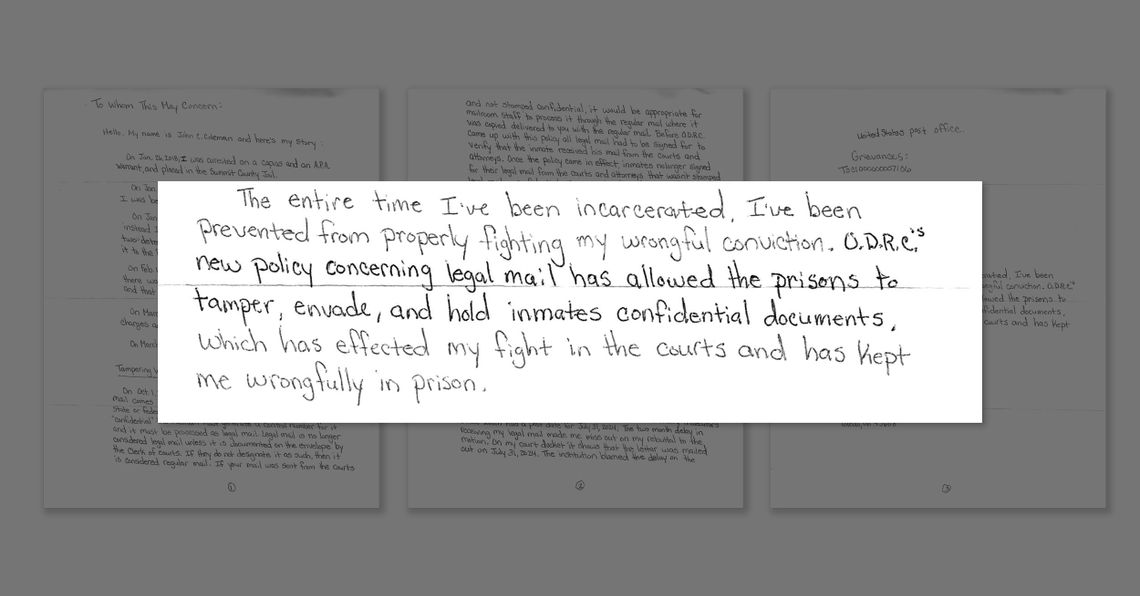 To Whom This May Concern:
Hello. My name is John C. Coleman and here's my story:
On Jan. 26, 2018, I was arrested on a capias and on A.P.A.
warrant, and placed in the Summit County Jail.
On Jan
I was be
On Jan
instead
two-deter
it to the
On Feb.
there was
and that
On Marc
charges a
On March
Tampering
On Oct. 1,
mail comes
State or Feder
"confidential"
and it must be processed as legal mail. Legal mail is no longer
considered legal mail unless it is documented on the envelope by
the Clerk of Courts. If they do not designate it as such, then it
is considered regular mail. If your mail was sent from the courts
1
and not stamped confidential, it would be appropriate for
mailroom staff to process it through the regular mail where it
was copied delivered to you with the regular mail. Before O.D.R.C.
came up with this policy all legal mail had to be signed for to
verify that the inmate received his mail from the courts and
attorneys. Once the policy came in effect, inmates no longer signed
for their legal mail from the courts and attorneys that wasn't stamped
The entire time I've been incarcerated, I've been
prevented from properly fighting my wrongful conviction. O.D.R.C.'s
new policy concerning legal mail has allowed the prisons to
tamper, envade, and hold inmates confidential documents,
which has effected my fight in the courts and has kept
me wrongfully in prison.
date for July 31, 2024. The two month delay in
receiving my legal mail made me miss out on my rebuttal to the
motion. On my court docket it shows that the letter was mailed
out on July 31, 2024. The institution blamed the delay on the
2
United States post office.
Grievances:
rated, I've been
conviction. O.D.R.C.'s
owed the prisons to
documents,
courts and has kept
3